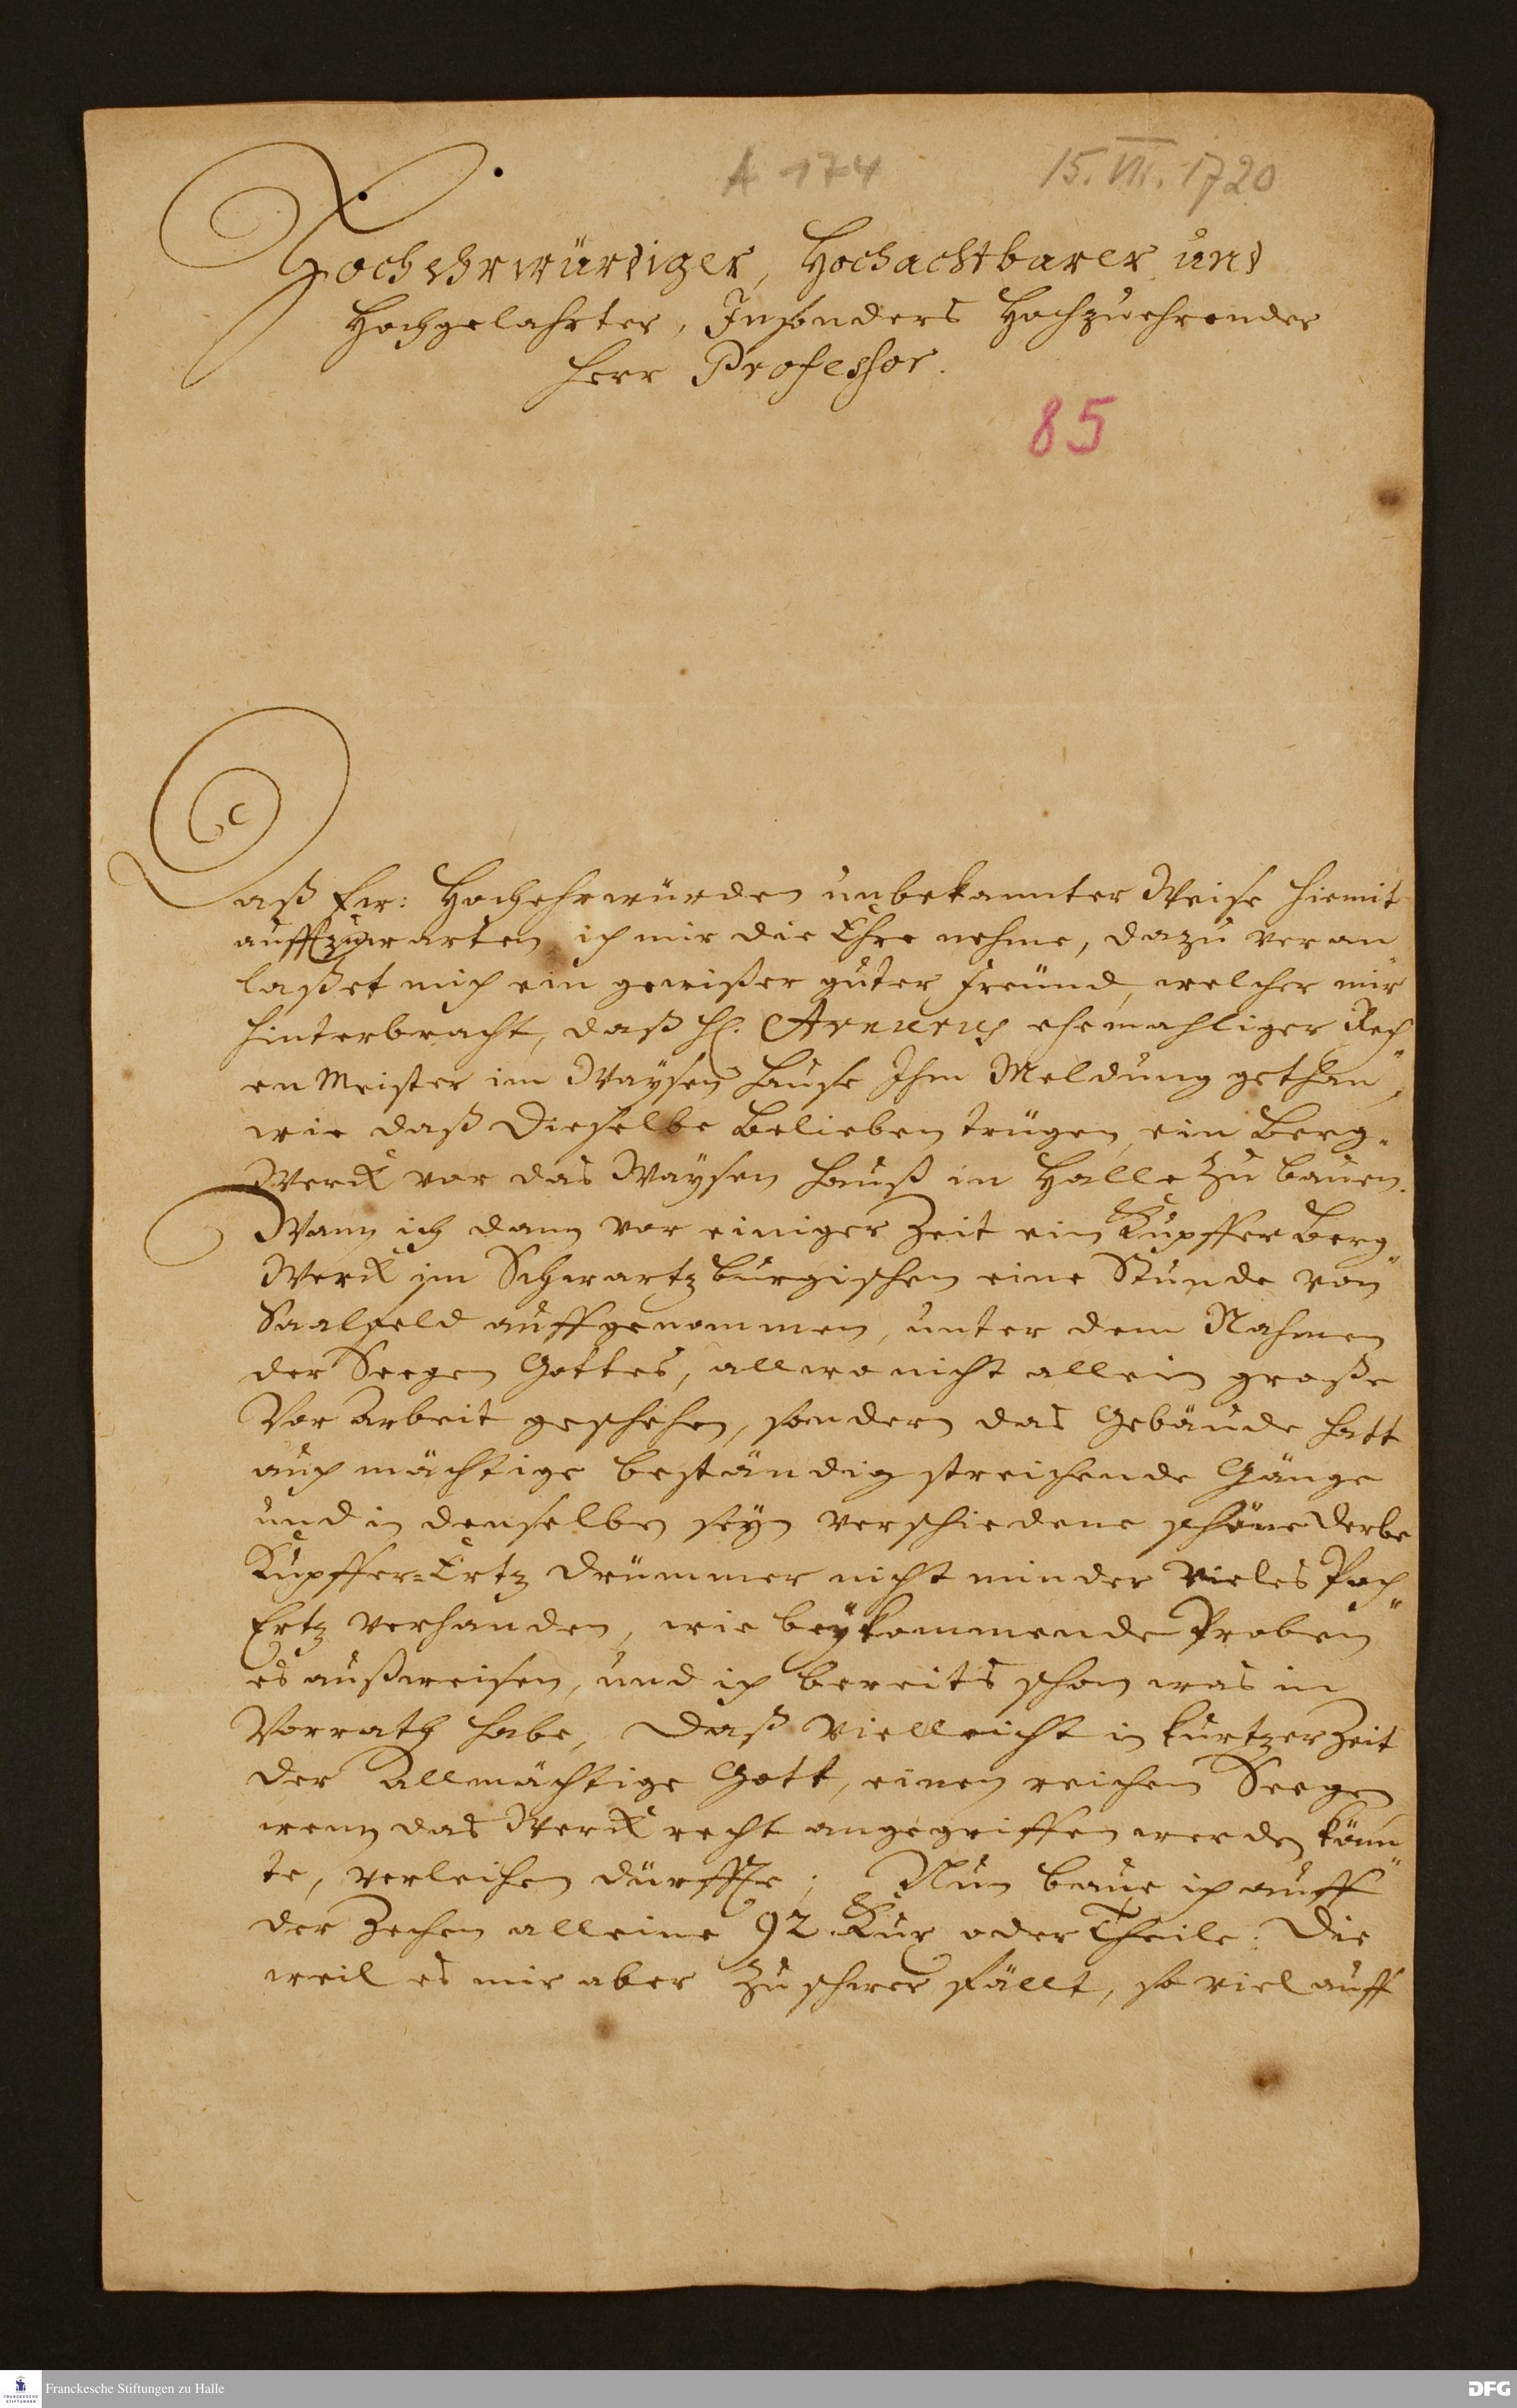 A 174 15. VII. 1720
HochEhrwürdiger, Hochachtbarer und
Hochgelahrter, Insonders Hochzuehrender
Herr Professor.
85
Daß Ew: Hochehrwürden unbekannter Weise hiemit
auffzuwarten ich mir die Ehre nehme, dazu veran„
laßet mich ein gewißer guter Freund, welcher mir
hinterbracht, daß H. ehemahliger Rech„
en Meister im Waysen Hause Ihm Meldung gethan,
wie daß Dieselbe Belieben trügen, ein Berg„
Werck vor das Waysen Hauß in Halle zu bauen.
Wann ich dann vor einiger Zeit ein Kupffer Berg„
Werck im Schwartzburgischen eine Stunde von
Saalfeld auffgenommen, unter dem Nahmen
der Seegen Gottes, allwo nicht allein große
Vor Arbeit geschehen, sondern das Gebäude hatt
auch mächtige beständig streichende Gänge
und in denselben seyn verschiedene schöne derbe
Kupffer=Ertz Drümmer nicht minder vieles Poch„
Ertz verhanden, wie beykommende Proben
es außweisen, und ich bereits schon was in
Vorrath habe, Daß vielleicht in kurtzer Zeit
der Allmächtige Gott, einen reichen Seegen,
wenn das Werck recht angegriffen werden könn„
te, verleihen dürffte; Nun baue ich auff
der Zechen alleine 92. Kux oder Theile: Die
weil es mir aber zu schwer fällt, so viel auff
Franckesche Stiftungen zu Halle
DFG